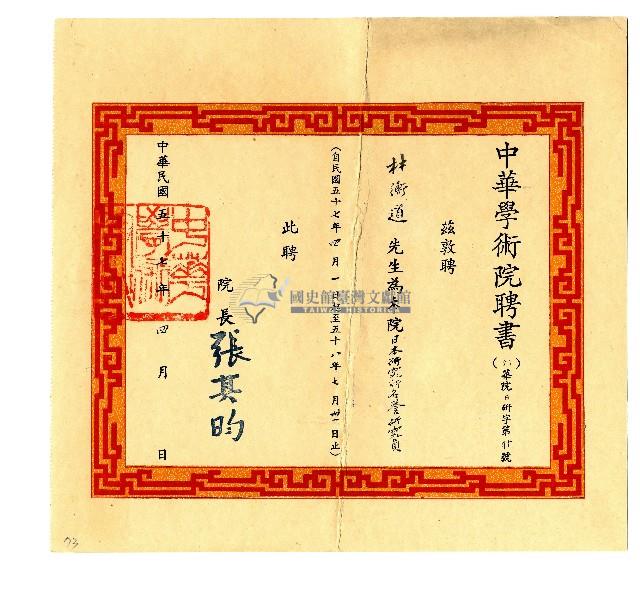 中華學術院聘書
（57）華院日研字第廿號
茲敦聘
林衡道 先生為本院日本研究所名譽研究員
（自民國五十七年四月一日起至五十八年七月卅一日止）
此聘
院長 張其昀
中華民國五十七年四月 日
國史館臺灣文獻館
TAIWAN HISTORICA
73